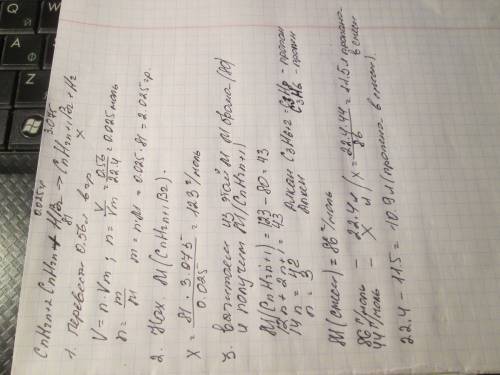 0.025г 3.075
CnH2n+2 CnH2n + HBr → CnH2n+1Br + H2
81 x
1. Перевести 0.56л в гр.
V = n · Vm; n = V/Vm = 0.56/22.4 = 0.025 моль
n = m/M m = n·M = 0.025·81 = 2.025 гр.
2. Нах. M(CnH2n+1Br).
x = 81 · 3.075 / 0.025 = 123 г/моль
3. вычитаем из этой M M брома (80)
и получаем M(CnH2n+1)
M(CnH2n+1) = 123 - 80 = 43
12n + 2n + 1 = 43 Алкан C3H8 - пропан
14n = 42 Алкен C3H6 - пропен
n = 3
M(смеси) = 86 г/моль
86 г/моль - 22.4л
44 г/моль - x л (x = 22.4·44/86 = 11.5 л пропана в смеси
22.4 - 11.5 = 10.9 л (пропена в смеси)